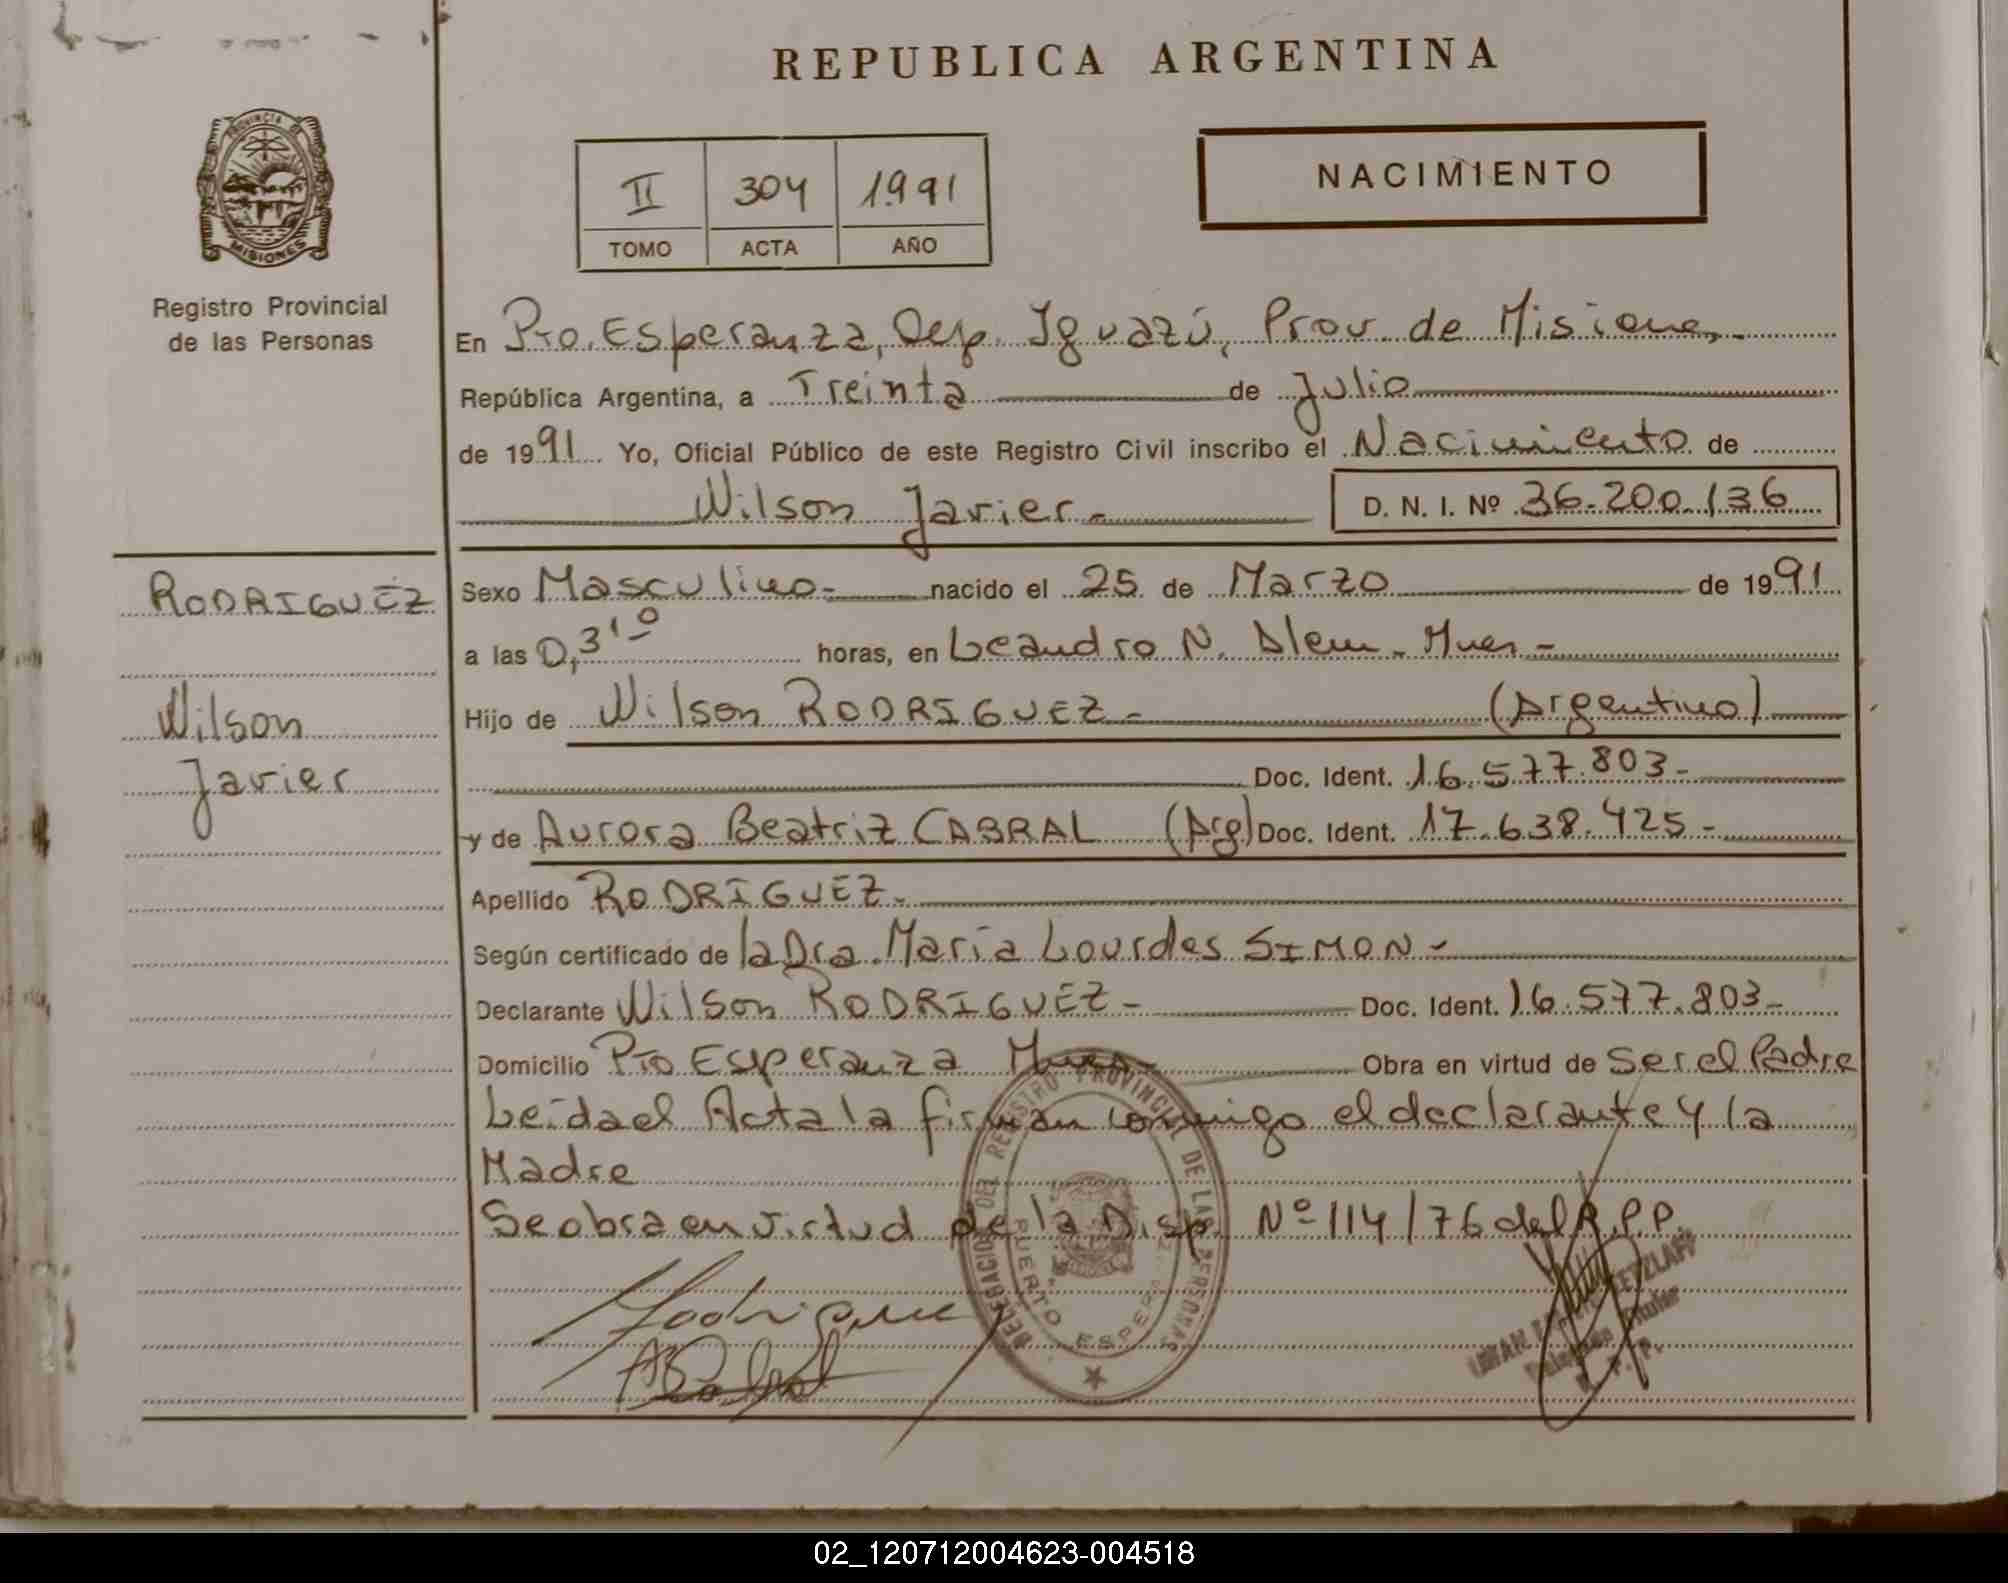 REPUBLICA ARGENTINA
PROVINCIA DE
MISIONES
Registro Provincial
de las Personas
II 304 1991
TOMO ACTA AÑO
NACIMIENTO
En Pto. Esperanza, Dep. Iguazú, Prov. de Misiones
República Argentina, a Treinta de Julio
de 1991 Yo, Oficial Público de este Registro Civil inscribo el Nacimiento de
Wilson Javier.- D. N. I. Nº 36.200.136
RODRIGUEZ
Wilson
Javier
Sexo Masculino- nacido el 25 de Marzo de 1991
a las 0,31º horas, en Leandro N. Alem - Mnes -
Hijo de Wilson RODRIGUEZ - (Argentino)
Doc. Ident. 16.577.803-
y de Aurora Beatriz CABRAL (Arg) Doc. Ident. 17.638.425-
Apellido RODRIGUEZ.
Según certificado de la Dra. María Lourdes SIMON -
Declarante Wilson RODRIGUEZ- Doc. Ident. 16.577.803-
Domicilio Pto Esperanza Mnes- Obra en virtud de Ser el Padre
Leida el Acta la firman conmigo el declarante y la
Madre
Se obra en virtud de la Disp. Nº 114/76 del R.P.P.
DELEGACION DEL REGISTRO PROVINCIAL DE LAS PERSONAS
PUERTO ESPERANZA
Rodriguez
ABCabral
Titular
R. P. P.
02_120712004623-004518